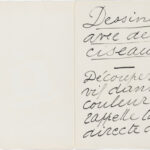 Dessin
avec de
ciseau
Découper
vif dans
couleur
rappelle la
directe d